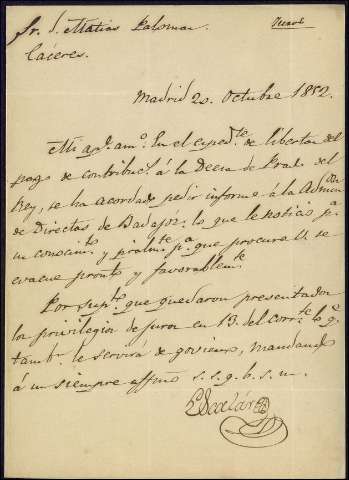 Sr. d. Matias Palomar
Cáceres.
Madrid 20 Octubre 1852.
Mi ap.do am.o En el exped.te de libertar del
pago de contribuc.n á la Decia de Prado del
Rey, se ha acordado pedir informe á la Admon
de Directas de Badajoz. lo que le noticio p.a
su conocim.to y pralm.te p.a que procure V. se
evacue pronto y favorablem.te
Por sup.to que quedaron presentados
los privilegios de juros en 13 del corr.te lo q.e
tamb.n le servirá de govierno, mandando
á su siempre affmo s. s. q. b. s. m.